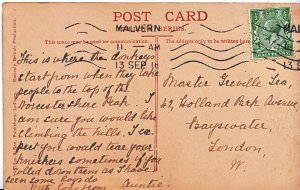 POST CARD
MALVERN
11 AM
13 SEP
MALV
13 SEP
This space may be used
The address only to be written
This is where the donkeys
start from when they take
people to the top of the
Worcestershire Beak. I
am sure you would like
climbing the hills. I ex
pect you would tear your
knickers sometimes if you
rolled down them as I have
seen some boys do
love from Auntie.
Master Greville Lea,
42, Holland Park Avenue,
Bayswater,
London,
W.